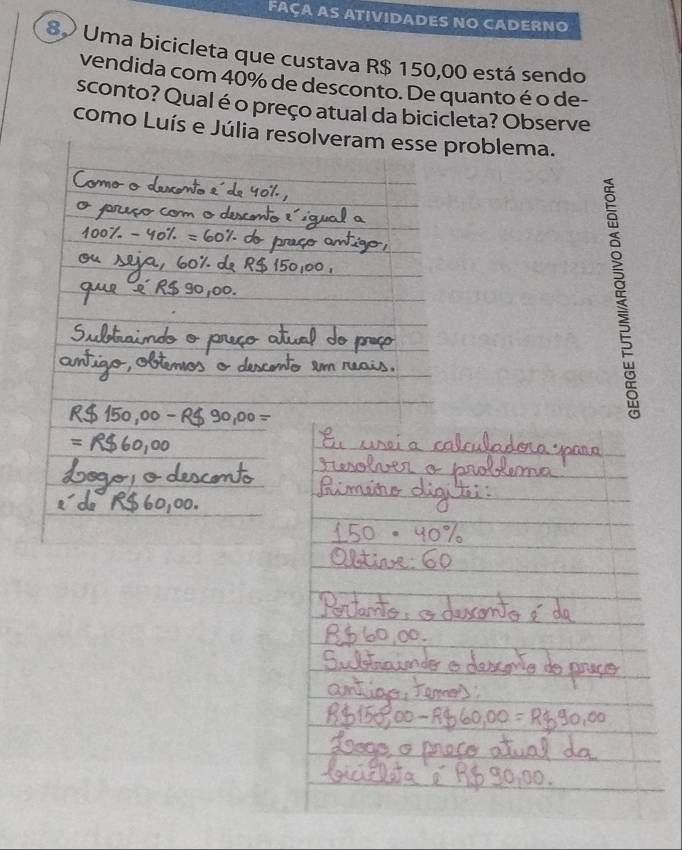 FAÇA AS ATIVIDADES NO CADERNO
8. Uma bicicleta que custava R$ 150,00 está sendo
vendida com 40% de desconto. De quanto é o de-
sconto? Qual é o preço atual da bicicleta? Observe
como Luís e Júlia resolveram esse problema.
Como o desconto é de 40%,
o preço com o desconto é igual a
100% - 40% = 60% do preço antigo,
ou seja, 60% de R$ 150,00,
que é R$ 90,00.
Subtraindo o preço atual do preço
antigo, obtemos o desconto em reais.
R$ 150,00 - R$ 90,00 =
= R$ 60,00
Logo, o desconto
é de R$ 60,00.
Eu usei a calculadora para
resolver o problema.
Primeiro digitei:
150 · 40%
Obtive: 60
Portanto, o desconto é de
R$ 60,00.
Subtraindo o desconto do preço
antigo, temos:
R$ 150,00 - R$ 60,00 = R$ 90,00
Logo o preço atual da
bicicleta é R$ 90,00.
GEORGE TUTUMI/ARQUIVO DA EDITORA